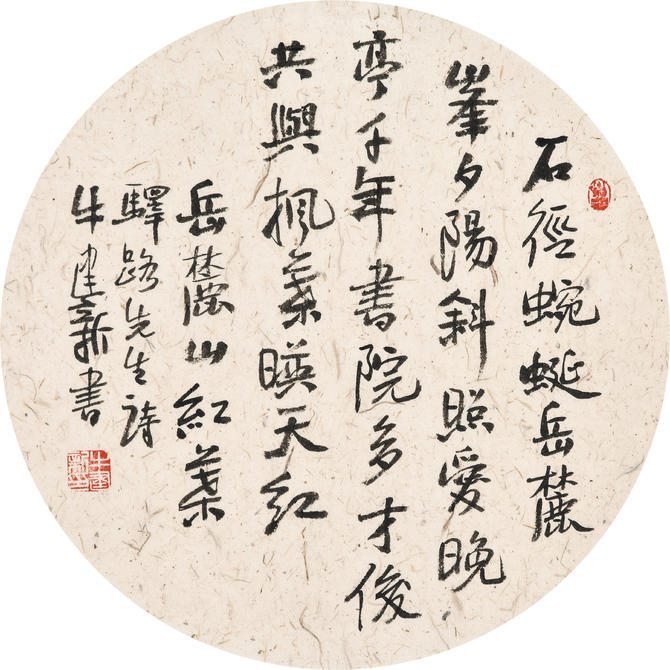 石徑蜿蜒岳麓
峯夕陽斜照愛晚
亭千年書院多才俊
共與楓葉暎天紅
岳麓山紅葉
驛路先生詩
牛建新書